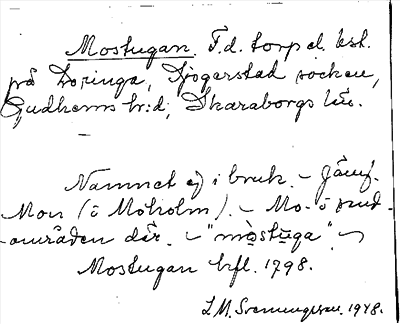 Mostugan. F.d. torp el. bst.
på Döringa, Djogerstad socken,
Gudhems hr:d, Skaraborgs län.
Namnet ej i bruk. – Jämf.
Mon (ö Moholm). – Mo- ö
-området där. – "mostuga" –
Mostugan bfl. 1798.
L.M. Svenungsson. 1948.